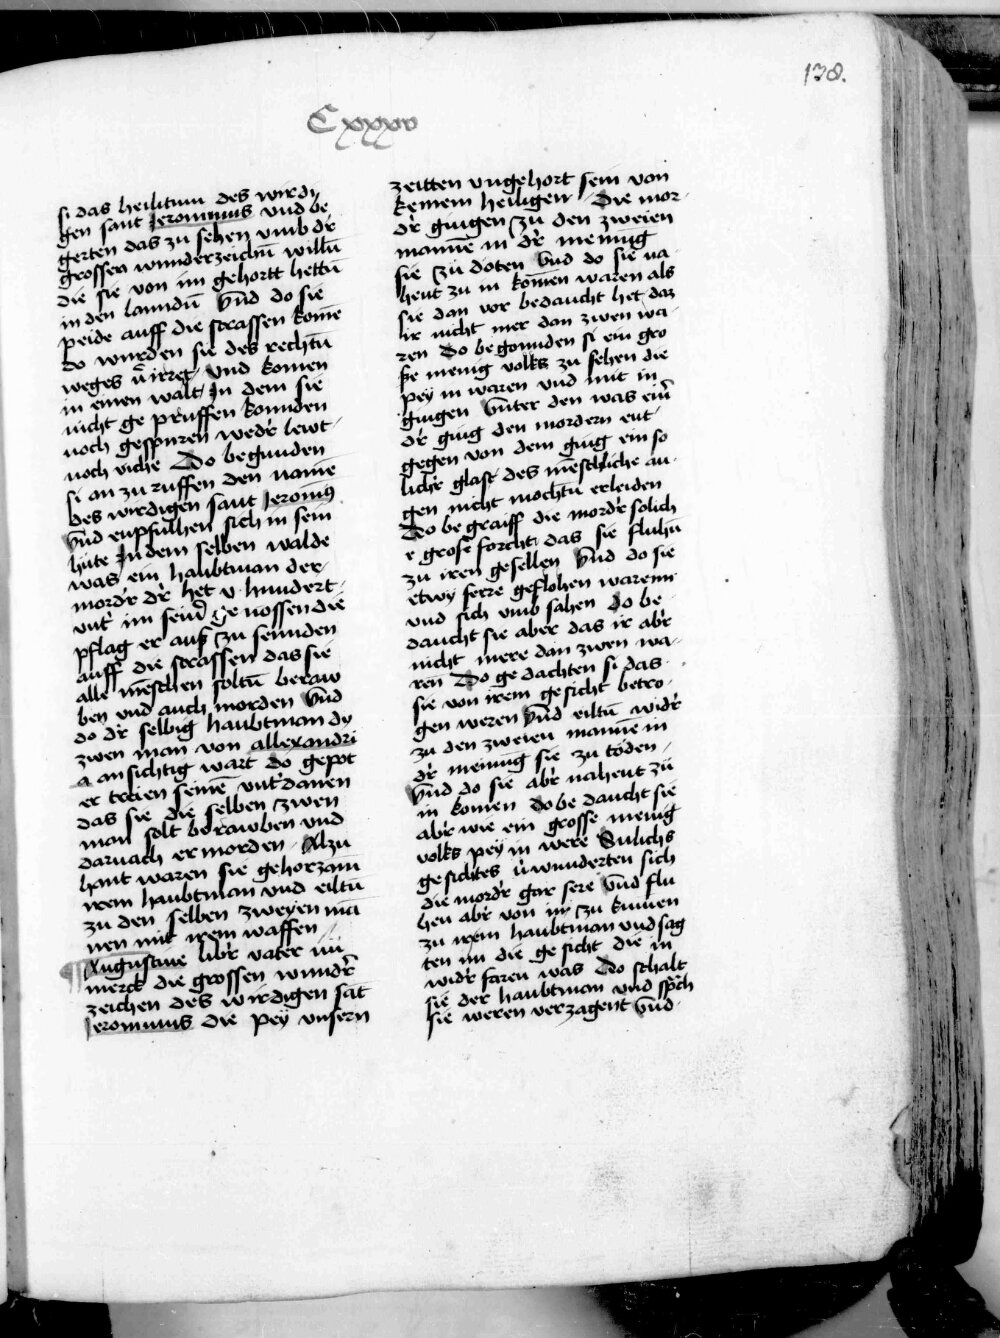 138.
Cxxxv
si das heilitum des wirdi
gen sant Jeronimus vnd be
gerten das zu sehen vmb dr̄
grossen wunderzeichn̄ willn̄
die sie von im gehortt hettn̄
in den lanndn̄ Vn̄d do sie
peide auff die strassen kome
do wurden sie des rechtn̄
weges v̄irret vnd komen
in einen walt In dem sie
nicht ge pruffen konnden
noch gespuren wedr̄ lewt
noch viche Do begunden
si an zu ruffen den name
des wirdigen sant Jeronim9
Vn̄d enpfulhen sich in sein
hute In dem selben walde
was ein haubtman der
mordr̄ dr̄ het v hundert
vnt̄ im sein̄ ge nossen die
pflag er aus zu sennden
auff die strassen das sie
alle mēschen soltn̄ beraw
ben vnd auch morden Vn̄d
do dr̄ selbig haubtman dy
zwen man von allexandri
a ansichtig wart do gepot
er treien seinē vnt̄danen
das sie die selben zwen
man solt berawben vnd
darnach er morden Alzu
hant waren sie gehorzam
irem haubtman vnd eiltn̄
zu den selben zweyen mā
nen mit irem waffen
Augustine libr̄ vater nū
merck die grossen wundr̄
zeichen des wirdigen sāt
Jeronimus die pey vnsern
zeitten vngehort sein von
keinem heiligen Die mor
dr̄ gingen zu den zweien
mannē in dr̄ meinūg
sie zu doten Vnd do sie na
hent zu in komen waren als
sie dan vor bedaucht het daz
ir nicht mer dan zwen wa
ren Do begonnden si ein gro
sse menig volks zu sehen die
pey in waren vnd mit in
gingen Vnter den was ein̄
dr̄ ging den mordern ent
gegen von dem ging ein so
lichr̄ glast des mēschliche au
gen nicht mochtn̄ erleiden
Do be graiff die mordr̄ solich
e grose forcht das sie fluhn̄
zu iren gesellen Vnd do sie
etwy ferre geflohen warenn
vnd sich vmb sahen Do be
daucht sie aber das ir abr̄
nicht mere dan zwen wa
ren Do ge dachten si das
sie von irem ge sicht betro
gen weren Vn̄d eiltn̄ widr̄
zu den zweien mannē in
dr̄ meinung sie zu töden
Vnd do sie abr̄ nahent zu
in komen do be daucht sie
abr̄ wie ein grosse menig
volks pey in were Sulichs
gesichtes v̄wunderten sich
die mordr̄ gar sere Vnd flu
hen abr̄ von in zu kumen
zu irem haubtman vnd sag
ten im die ge sicht die in
widr̄ faren was Do schalt
sie der haubtman vnd sp̄ch
sie weren verzagent Vnd